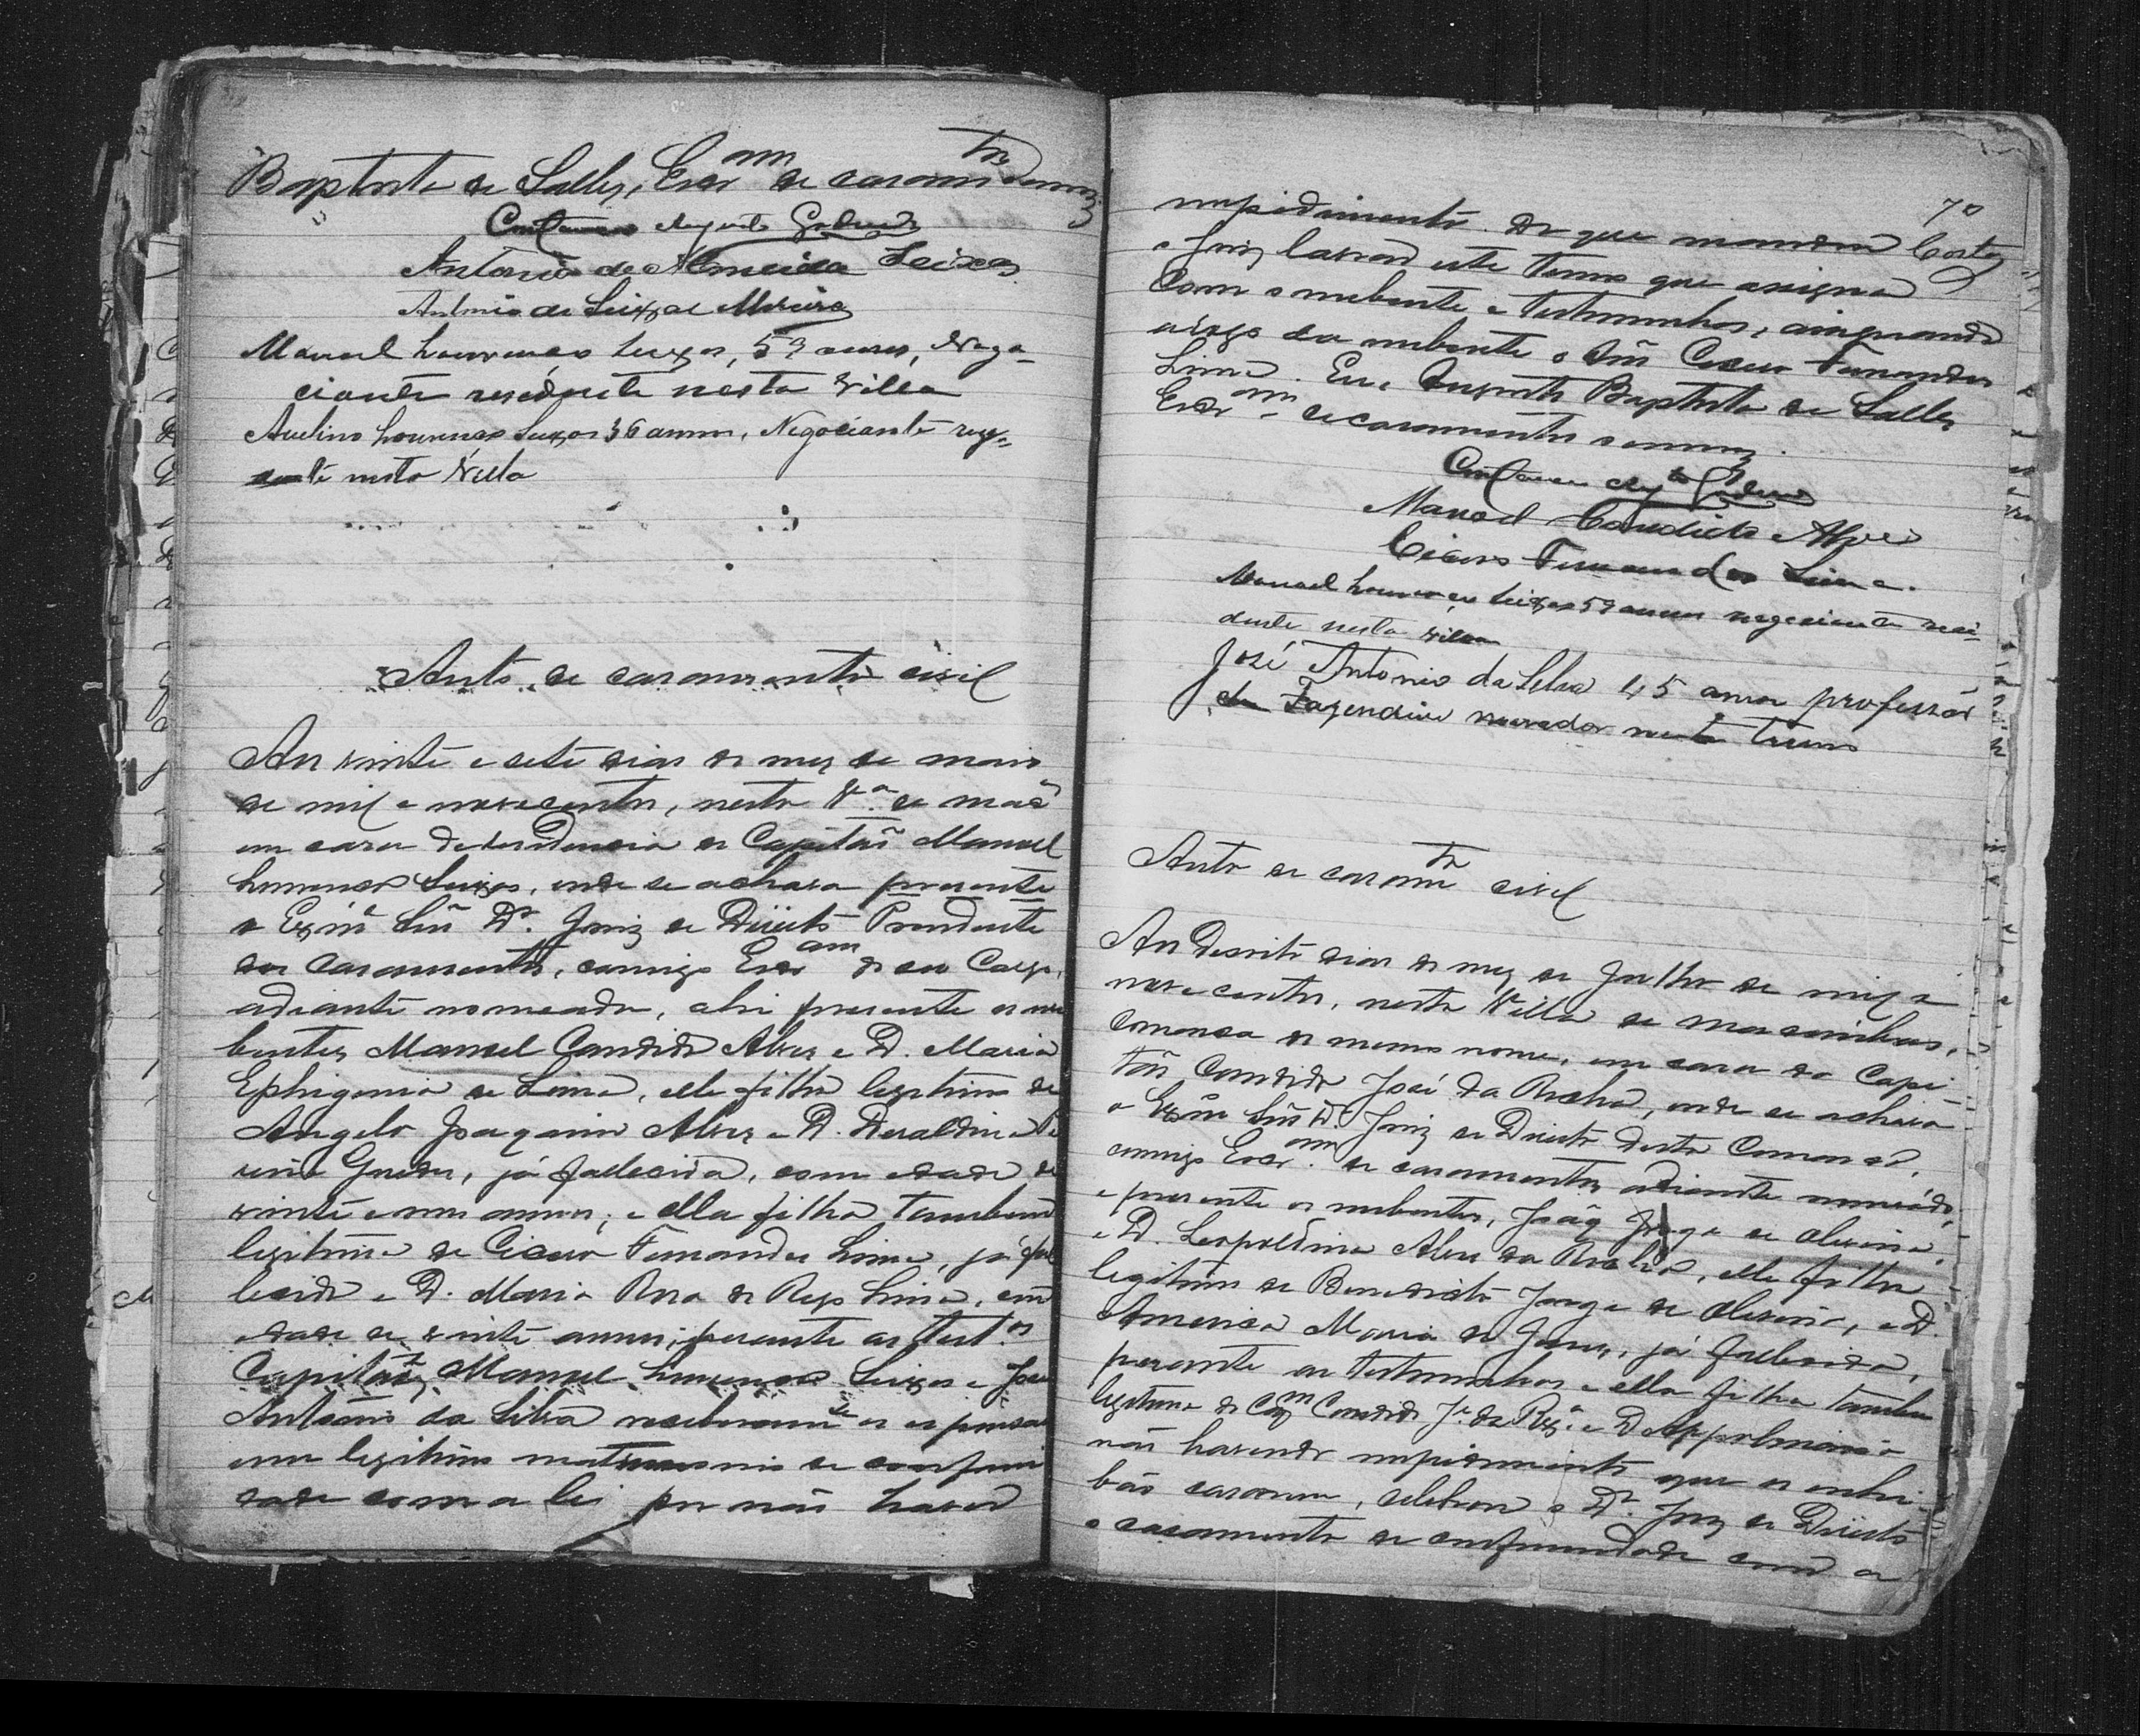 Baptista de Salles, Escr.am de casam.tos o escrevi
Antonio de Almeida Seixas
Antonio de Seixas Moreira
Manoel Lourenço Seixas, 59 annos, Nego-
ciante residente nesta villa
Avelino Lourenço Seixas 36 annos, Negociante resi-
dente nesta Villa
Auto de casamento civil
Aos vinte e sete dias do mez de maio
de mil e novecentos, nesta V.a de
em casa de residencia do Capitão Manoel
Lourenço Seixas, onde se achava presente
o Exmo Snr Dr. Juiz de Direito Presidente
dos casamentos, comigo Escr.am de seu Cargo,
adiante nomeado, ahi presente os nu
bentes Manoel Candido Alves e D. Maria
Ephigenia de Lima, elle filho legitimo de
Angelo Joaquim Alves e D.
já fallecida, com edade de
vinte e um annos; e ella filha tambem
legitima de Cicero Fernandes Lima, já fal
lecido e D. Maria Rosa do Rego Lima, com
edade de vinte annos; perante as test.as
Capitão Manoel Lourenço Seixas e José
Antonio da Silva receberam-se os esposos
em legitimo matrimonio de conformi
dade com a lei por não haver
70
impedimento. Do que mandou
o Juiz lavrar este termo que assigna
com o nubente e testemunhas, assignando
a rogo da nubente o Snr Cicero Fernandes
Lima. Eu, Augusto Baptista de Salles
Escr.am de casamentos o escrevi.
Manoel Candido Alves
Cicero Fernandes Lima.
Manoel Lourenço Seixas 59 annos negociante resi-
dente nesta villa
José Antonio da Silva 45 annos professor
Fazendeiro morador neste termo
Auto de casam.to civil
Aos Desoito dias do mez de Julho de mil e
novecentos, nesta Villa de
comarca do mesmo nome, em casa do Capi
tão Candido José da Rocha, onde se achava
o Exmo Snr Dr. Juiz de Direito desta Comarca,
comigo Escr.am de casamentos adiante nomeado,
e presente os nubentes, João Jorge de Oliveira,
e D. Leopoldina Alves da Rocha, elle filho
legitimo de Benedicto Jorge de Oliveira, e D.
America Maria de Jesus, já fallecida,
perante as testemunhas e ella filha tambem
legitima do Cap.m Candido J.e da R.a e D. Appolinaria
não havendo impedimento que os inhi-
bão casarem, celebrou o Dr. Juiz de Direito
o casamento de conformidade com a